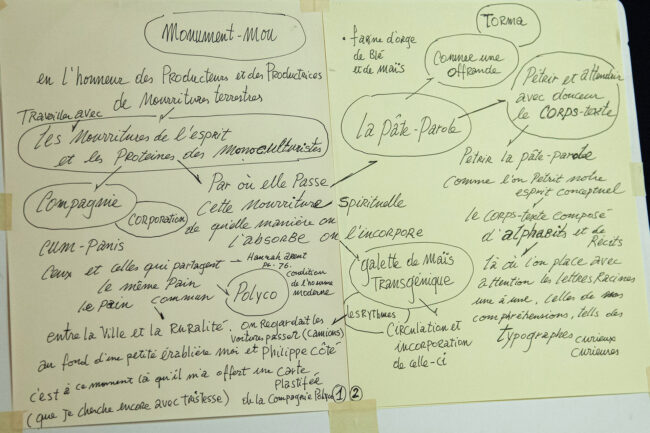 Monument-Mou
en l'honneur des Producteurs et des Productrices
de Nourritures terrestres
Travailler avec
Les Nourritures de l'esprit
et les Protéines des Monoculturistes
Compagnie
Corporation
Par où elle Passe
Cette Nourriture Spirituelle
de quelle manière on
l'absorbe on l'incorpore
CUM-PANIS
Ceux et celles qui partagent
le même Pain
le Pain commun
Hannah Arent
Pg. 76.
condition
de l'homme
moderne
Polyco
entre la Ville et la Ruralité. on Regardait les
voitures passer (camions)
au fond d'une petite érablière moi et Philippe Côté
c'est à ce moment là qu'il m'a offert une carte
plastifée
(que je cherche encore avec tristesse) de la Compagnie Polyco
1 2
Torma
• farine d'orge
de Blé
et de Maïs
Comme une
offrande
La Pâte-Parole
Pétrir et attendrir
avec douceur
le CORPS-texte
Pétrir la pâte-parole
comme l'on Pétrit notre
esprit conceptuel
le CORPS-texte composé
d'alphabets et de
Récits
là où l'on place avec
attention les lettres Racines
une à une, celles de nos
compréhensions, tels des
typographes curieux
curieuses
galette de Maïs
Transgénique
les Rythmes
Circulation et
incorporation
de celle-ci